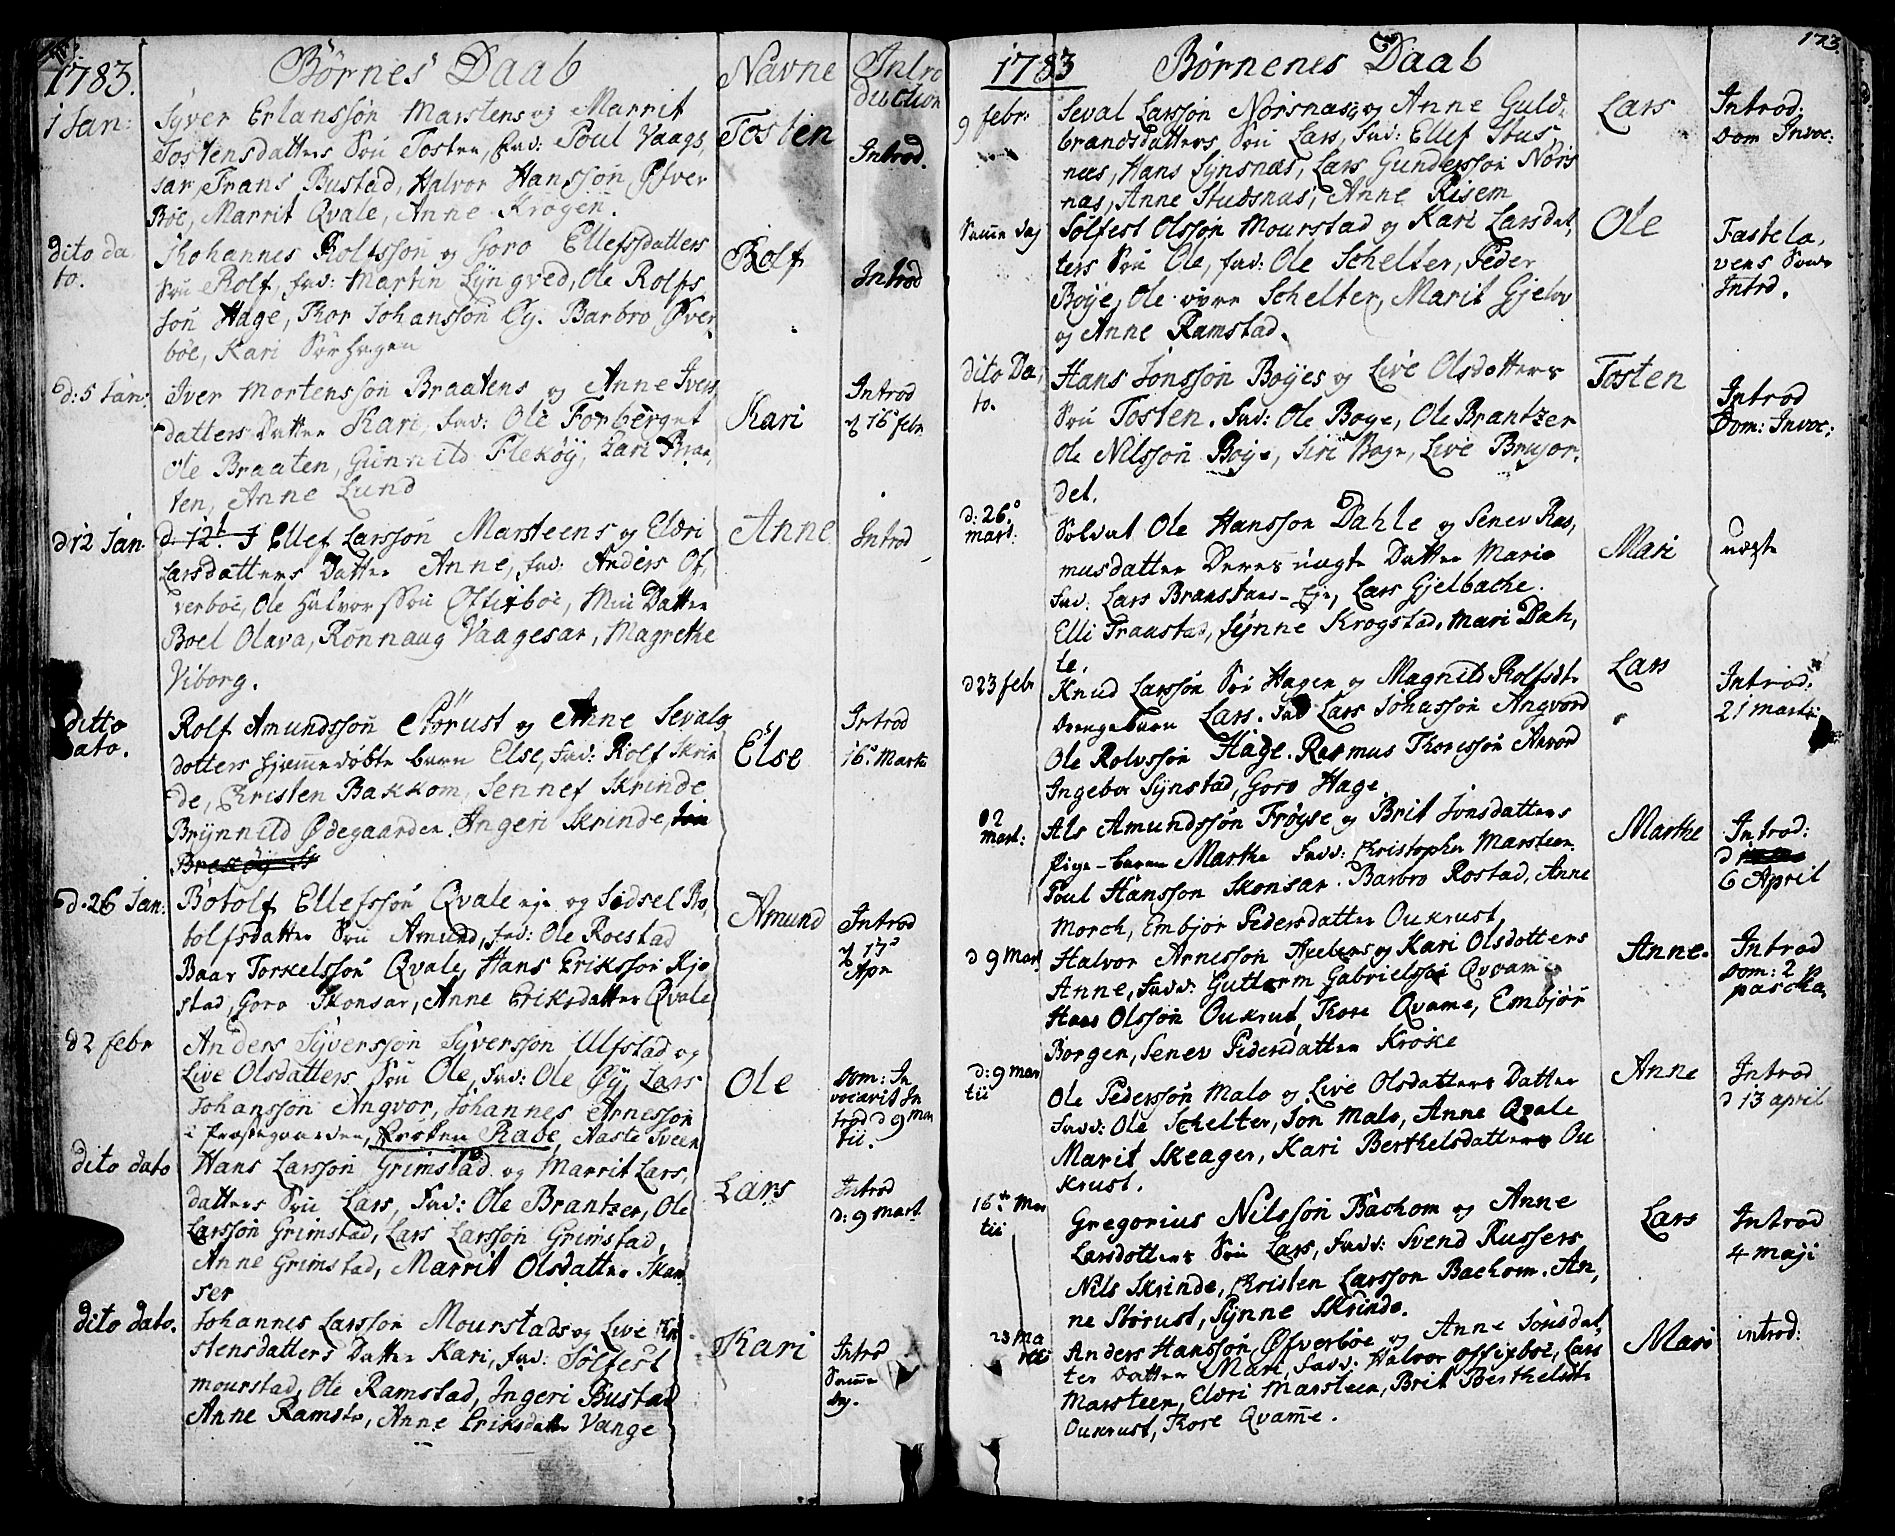 1783.
Børnes Daab
Navne
Intro
duction
1 Jan:
Syver Erlansson Marstens og Marrit
Tostensdatters Søn Tosten, fad: Poul Vaags,
sar, Frans Bustad, Halvor Hansson Øfver
Bøe, Marrit Qvale, Anne Krogen.
Tosten
Introd.
dito da
to.
Johannes Rolfsson og Goro Ellefsdatters
Søn Rolf, fad: Martin Lyngved, Ole Rolfs
søn Hage, Thor Johansson Ey. Barbro Øfver
bøe, Kari Sørhagen
Rolf
Introd
d: 5 Jan:
Iver Mortensson Braatens og Anne Ivers
datters Datter Kari, fad: Ole Forberget
Ole Braaten, Gunnild Flekøy, Kari Braa,
ten, Anne Lund
Kari
Introd
16 febr
d 12 Jan.
Ellef Larsson Marsteens og Eldri
Larsdatters Datter Anne, fad: Anders Of,
verboe, Ole Halvorsson Offirboe, Min Datter
Boel Olava, Rønnaug Vaagesar, Magrethe
Viborg.
Anne
Introd
Ditto
dato.
Rolf Amundsson Størust og Anne Sevals
dotters hjemmedøbte barn Else, fad: Rolf Skrin
de, Christen Bakkom, Sennef Skrinde
Brynnild Ødegaarden, Angeri Skrinde,
Else
Introd
16. Martii
d. 26 Jan:
Botolf Ellefsson Qvale eje og Sidsel Bo,
tolfsdatter Søn Amund, fad: Ole Roestad
Baar Torkelsson Qvale, Hans Eriksson Kjo
stad, Goro Skonsar, Anne Eriksdatter Qvale
Amund
Introd
Apr
d 2 febr
Anders Syversson Syversson Ulfstad og
Live Olsdatters Søn Ole, fad: Ole Øy, Lars
Johansson Angvor, Johannes Arnesson
i Præstegaarden, Rabe, Aaste Sveen
Ole
Dom: In
vocavit In
trod d 9 Mar
tii.
dito dato
Hans Larsson Grimstad og Marrit Lars,
datters Søn Lars, fad: Ole Brantzer, Ole
Larsson Grimstad, Lars Larsson Grimstad,
Anne Grimstad, Marrit Olsdatter Skan
ser
Lars
Introd
d: 9 Mart.
dito dato.
Johannes Larsson Mourstads og Live
stensdatters Datter Kari, fad: Solfest
mourstad, Ole Ramstad, Ingeri Bustad
Anne Ramst, Anne Eriksdatter Vange
Kari
Introd
Samme
dag.
123.
1783
Børnenes Daab
9 febr:
Seval Larsson Norsnæs og Anne Guld-
brandsdatters Søn Lars, fad: Ellef Stus
næs, Hans Synsnæs, Lars Gundersson Nors
næs, Anne Studsnæs, Anne Risem
Lars
Introd:
Dom Invoc:
Samme dag
Solfest Olsson Mourstad og Kari Larsdat,
ters Søn Ole, fad: Ole Schelter, Peder
Boye, Ole Schelter, Marit Gjelv
og Anne Ramstad.
Ole
Fastela,
vens
Introd.
dito Da,
to.
Hans Jonsson Boyes og Live Olsdatters
Søn Tosten. fad: Ole Boye, Ole Brantzer
Ole Nilsson Boye, Siri Boye, Live Brujor.
det.
Tosten
Introd
Dom: Invoc:
d: 26.
mart:
Soldat Ole Hansson Dahle og Senev Ras,
musdatter Deres uægte Datter Mari
fad: Lars Branstans-Eje, Lars Gjelbache.
Elli Fraustad, Synne Krogstad, Mari Dah,
le.
Mari
uægte
d 23 febr
Knud Larsson Sør Hagen og Magnild Rolfsdt
Drengebarn Lars. fad Lars Johasson Angvord
Ole Rolvsson Hage. Rasmus Thoresson Anvord
Ingebor Synstad, Goro Hage.
Lars
Introd:
21 Martii
2
mart:
Als Amundsson Frøyse og Brit Jonsdatters
Pige-barn Marthe fadd: Christopher Marsteen.
Poul Hansson Skonsar. Barbro Rostad, Anne
Morch, Embjor Pedersdatter Oukrust,
Marthe
Introd:
d
6 April
d 9 Mart
Halvor Arnesson og Kari Olsdotters
Anne, fadd: Guttorm Gabrielsson Qvam
Hans Olsson Oukrust, Thore Qvame, Embjør
Borgen, Senev Pedersdatter Kroke
Anne.
Introd
Dom: 2
pascha
d: 9 mar
tii
Ole Pedersson Malo og Live Olsdatters Datter
fadd: Ole Schelter, Jon Malo, Anne Qvale
Marit Skeager, Kari Berthelsdatter Ou
krust.
Anne
Introd
d 13 april
16 Mar
tii
Gregorius Nilsson Bachom og Anne
Larsdotters Søn Lars, fadd: Svend Russers
Nils Skrinde, Christen Larsson Bachom. An,
ne Størust, Synne Skrinde.
Lars
Introd
4 maji
23 Ma
rtii
Anders Hansson Øfverbøe og Anne Jonsdat,
ter Datter Mari, fadd: Halvor Offirboe, Lars
Marsteen, Eldri Marsteen, Brit Berthelsdt
Oukrust, Thore Qvamme.
Mari
introd: